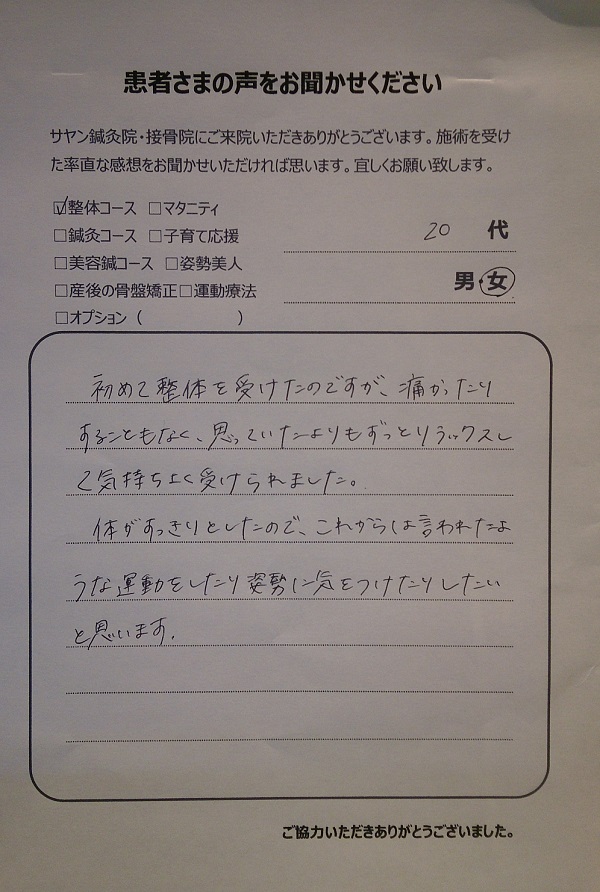 患者さまの声をお聞かせください
サヤン鍼灸院・接骨院にご来院いただきありがとうございます。施術を受け
た率直な感想をお聞かせいただければ思います。宜しくお願い致します。
☑整体コース □マタニティ
□鍼灸コース □子育て応援
□美容鍼コース □姿勢美人
□産後の骨盤矯正□運動療法
□オプション（ ）
20 代
男・女
初めて整体を受けたのですが、痛かったり
することもなく、思っていたよりもずっとリラックスし
て気持ちよく受けられました。
体がすっきりとしたので、これからは言われたよ
うな運動をしたり姿勢に気をつけたりしたい
と思います。
ご協力いただきありがとうございました。